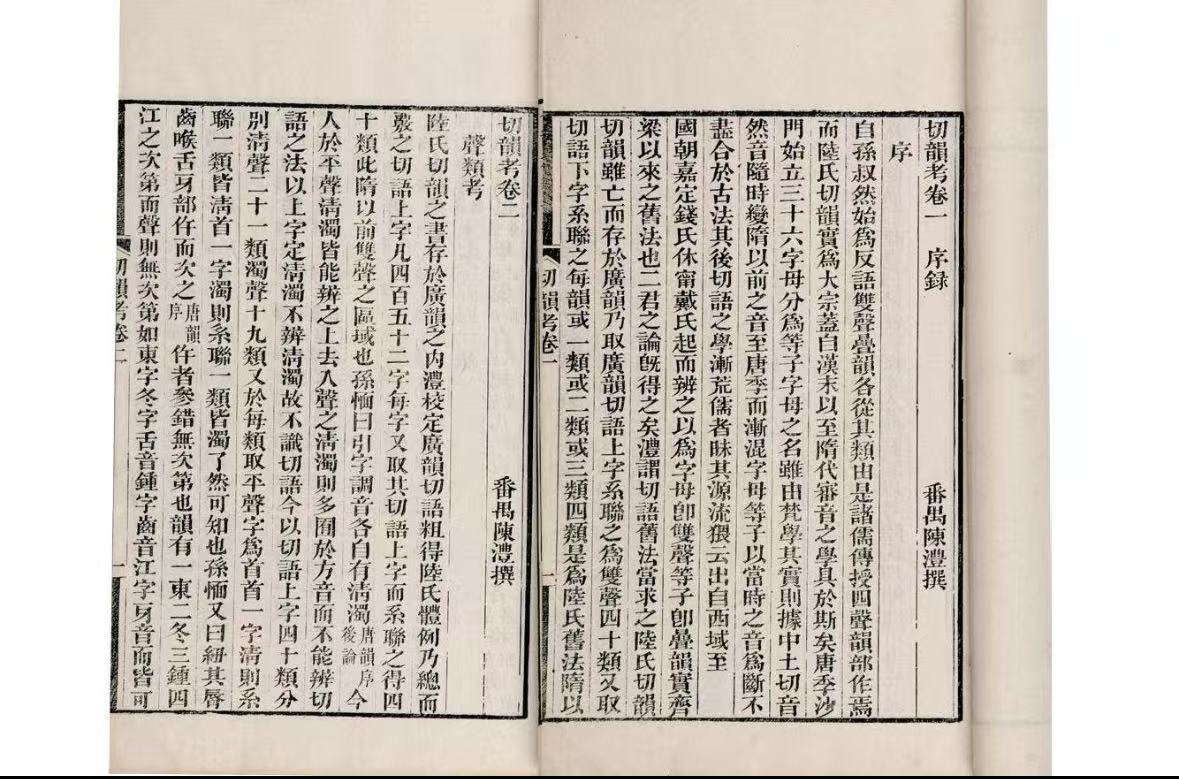 切韻考卷一　序録　番禺陳澧撰
序
自孫叔然始爲反語雙聲疊韻各從其類由是諸儒傳授四聲韻部作焉
而陸氏切韻實爲大宗蓋自漢末以至隋代審音之學具於斯矣唐季沙
門始立三十六字母分爲等子字母之名雖由梵學其實則據中土切音
然音隨時變隋以前之音至唐季而漸混字母等子以當時之音爲斷不
盡合於古法其後切語之學漸荒儒者昧其源流猥云出自西域至
國朝嘉定錢氏休甯戴氏起而辨之以爲字母卽雙聲等子卽疊韻實齊
梁以來之舊法也二君之論旣得之矣澧謂切語舊法當求之陸氏切韻
切韻雖亡而存於廣韻乃取廣韻切語上字系聯之爲雙聲四十類又取
切語下字系聯之每韻或一類或二類或三類四類是爲陸氏舊法隋以
切韻考卷一
一
切韻考卷二　番禺陳澧撰
聲類考
陸氏切韻之書存於廣韻之内澧校定廣韻切語粗得陸氏體例乃總而
覈之切語上字凡四百五十二字每字又取其切語上字而系聯之得四
十類此隋以前雙聲之區域也孫愐曰引字調音各自有淸濁唐韻序後論今
人於平聲淸濁皆能辨之上去入聲之淸濁則多囿於方音而不能辨切
語之法以上字定淸濁不辨淸濁故不識切語今以切語上字四十類分
別淸聲二十一類濁聲十九類又於每類取平聲字爲首首一字淸則系
聯一類皆淸首一字濁則系聯一類皆濁了然可知也孫愐又曰紐其脣
齒喉舌牙部仵而次之唐韻序仵者參錯無次第也韻有一東二冬三鍾四
江之次第而聲則無次第如東字冬字舌音鍾字齒音江字牙音而皆可
切韻考卷二
一